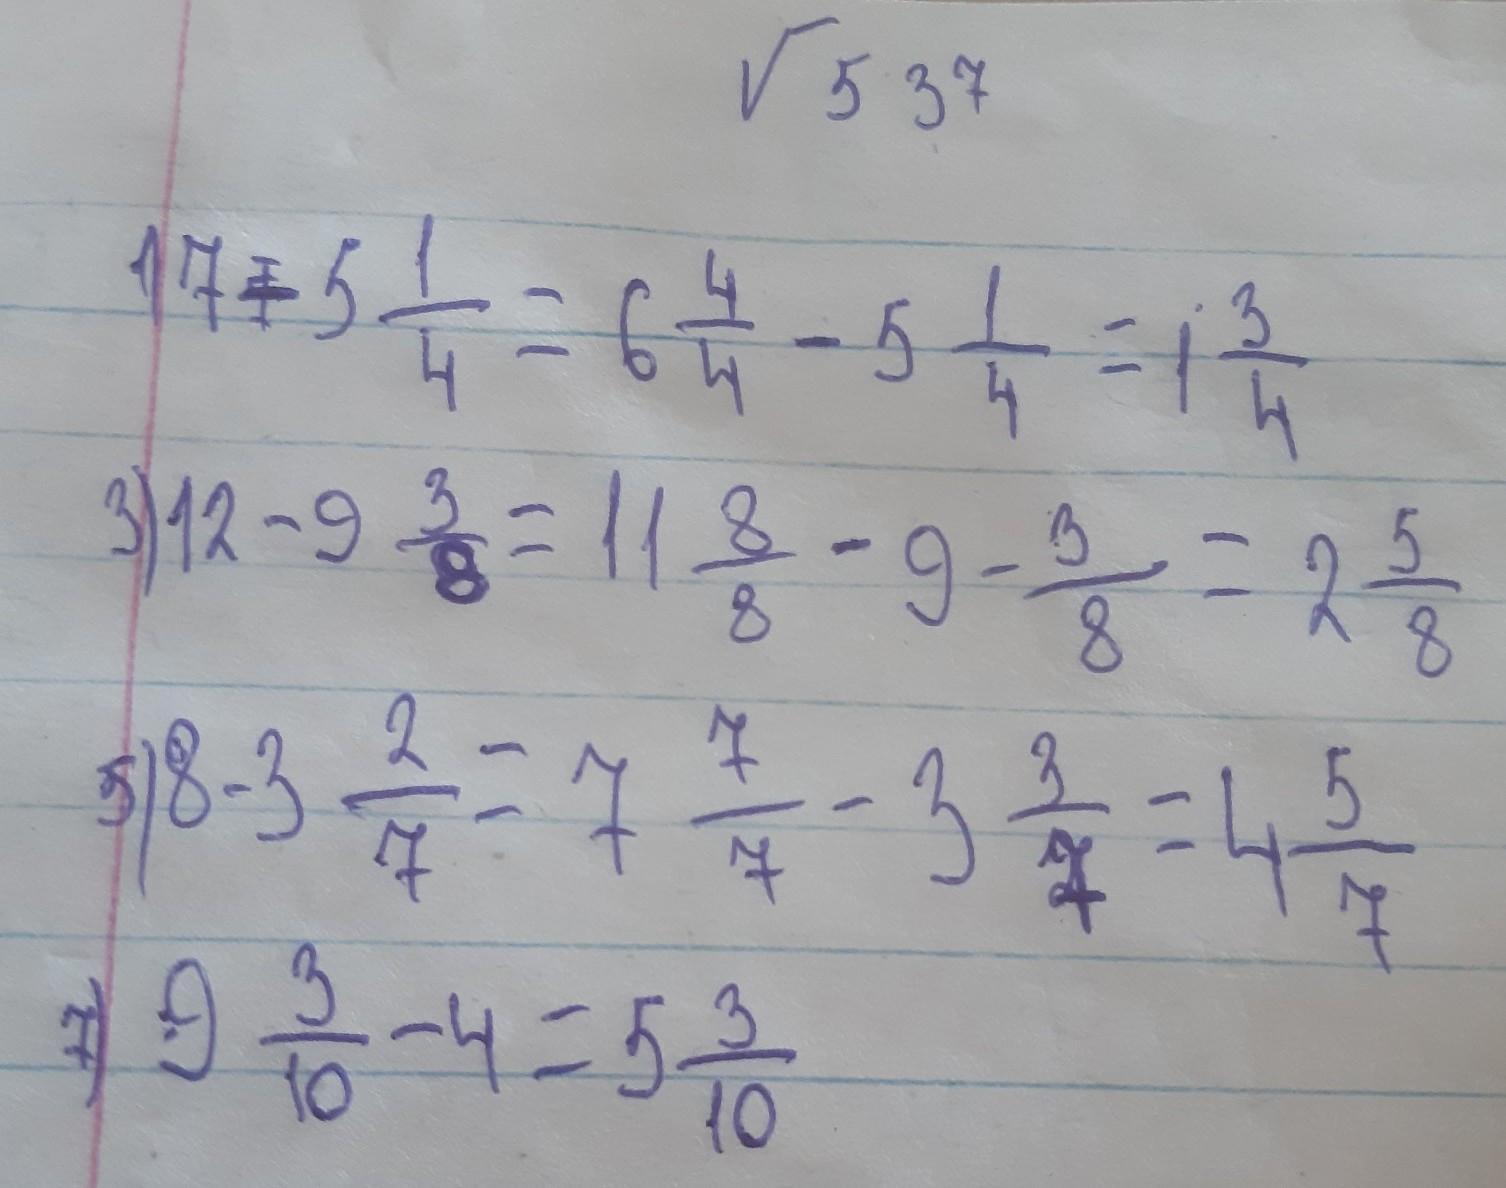 √ 537
1) 7 - 5 1/4 = 6 4/4 - 5 1/4 = 1 3/4
3) 12 - 9 3/8 = 11 8/8 - 9 - 3/8 = 2 5/8
5) 8 - 3 2/7 = 7 7/7 - 3 3/7 = 4 5/7
7) 9 3/10 - 4 = 5 3/10